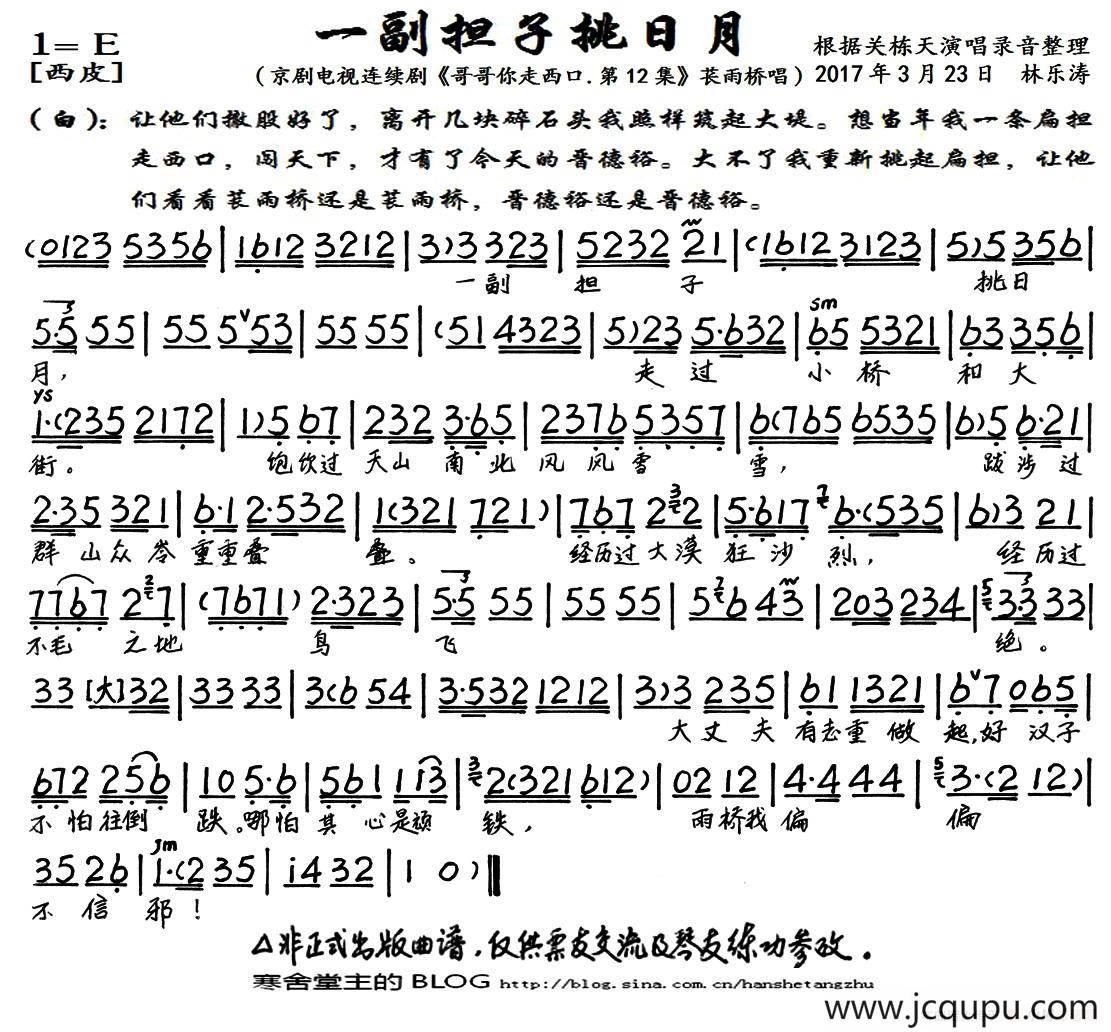 一副担子挑日月
1= E
[西皮]
根据关栋天演唱录音整理
(京剧电视连续剧《哥哥你走西口.第12集》苌雨桥唱) 2017年3月23日 林乐涛
(白): 让他们撤股好了，离开几块碎石头我照样筑起大堤。想当年我一条扁担
走西口，闯天下，才有了今天的晋德裕。大不了我重新挑起扁担，让他
们看看苌雨桥还是苌雨桥，晋德裕还是晋德裕。
(0123 5356 | 1612 3212 | 3) 3 323 | 5232 21 | (1612 3123 | 5) 5 356 |
一副 担 子 挑日
5·5 55 | 55 5ⱽ53 | 55 55 | (51 4323 | 5) 23 5·632 | 65 5321 | 63 356 |
月， 走 过 小 桥 和 大
1·(235 2172 | 1) 5 67 | 232 3·65 | 2376 5357 | 6(765 6535 | 6) 5 6·21 |
街。 饱饮过 天山 南 北 风 风 雪 雪， 跋 涉 过
2·35 321 | 6·1 2·532 | 1(321 721) | 767 2 2 | 5·617 6·(535 | 6) 3 21 |
群 山 众 岺 重重叠 叠。 经历过 大 漠 狂 沙 烈， 经历过
7767 2 7 | (7671) 2·323 | 5·5 55 | 55 55 | 5 6 43 | 203 234 | 3·3 33 |
不毛 之地 鸟 飞 绝。
33 [大] 32 | 33 33 | 3(6 54 | 3·532 1212 | 3) 3 235 | 61 1321 | 6ⱽ7 065 |
大 丈 夫 有志重 做 起，好 汉子
672 256 | 10 5·6 | 561 113 | 2(321 612) | 02 12 | 4·4 44 | 3·(2 12) |
不 怕往倒 跌。哪怕 其 心是顽 铁， 雨桥我 偏 偏
35 26 | 1·(2 35 | i4 32 | 1 0 ) ‖
不 信 邪！
△非正式出版曲谱，仅供票友交流及琴友练功参改。
寒舍堂主的BLOG http://blog.sina.com.cn/hanshetangzhu
www.jcqupu.com